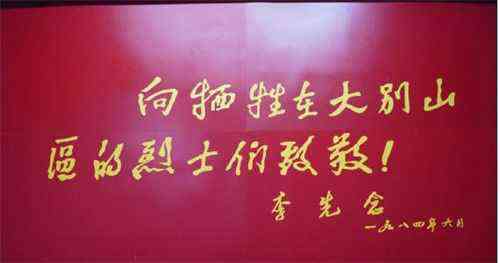 向牺牲在大别山
區的烈士们致敬！
李先念
一九八四年六月